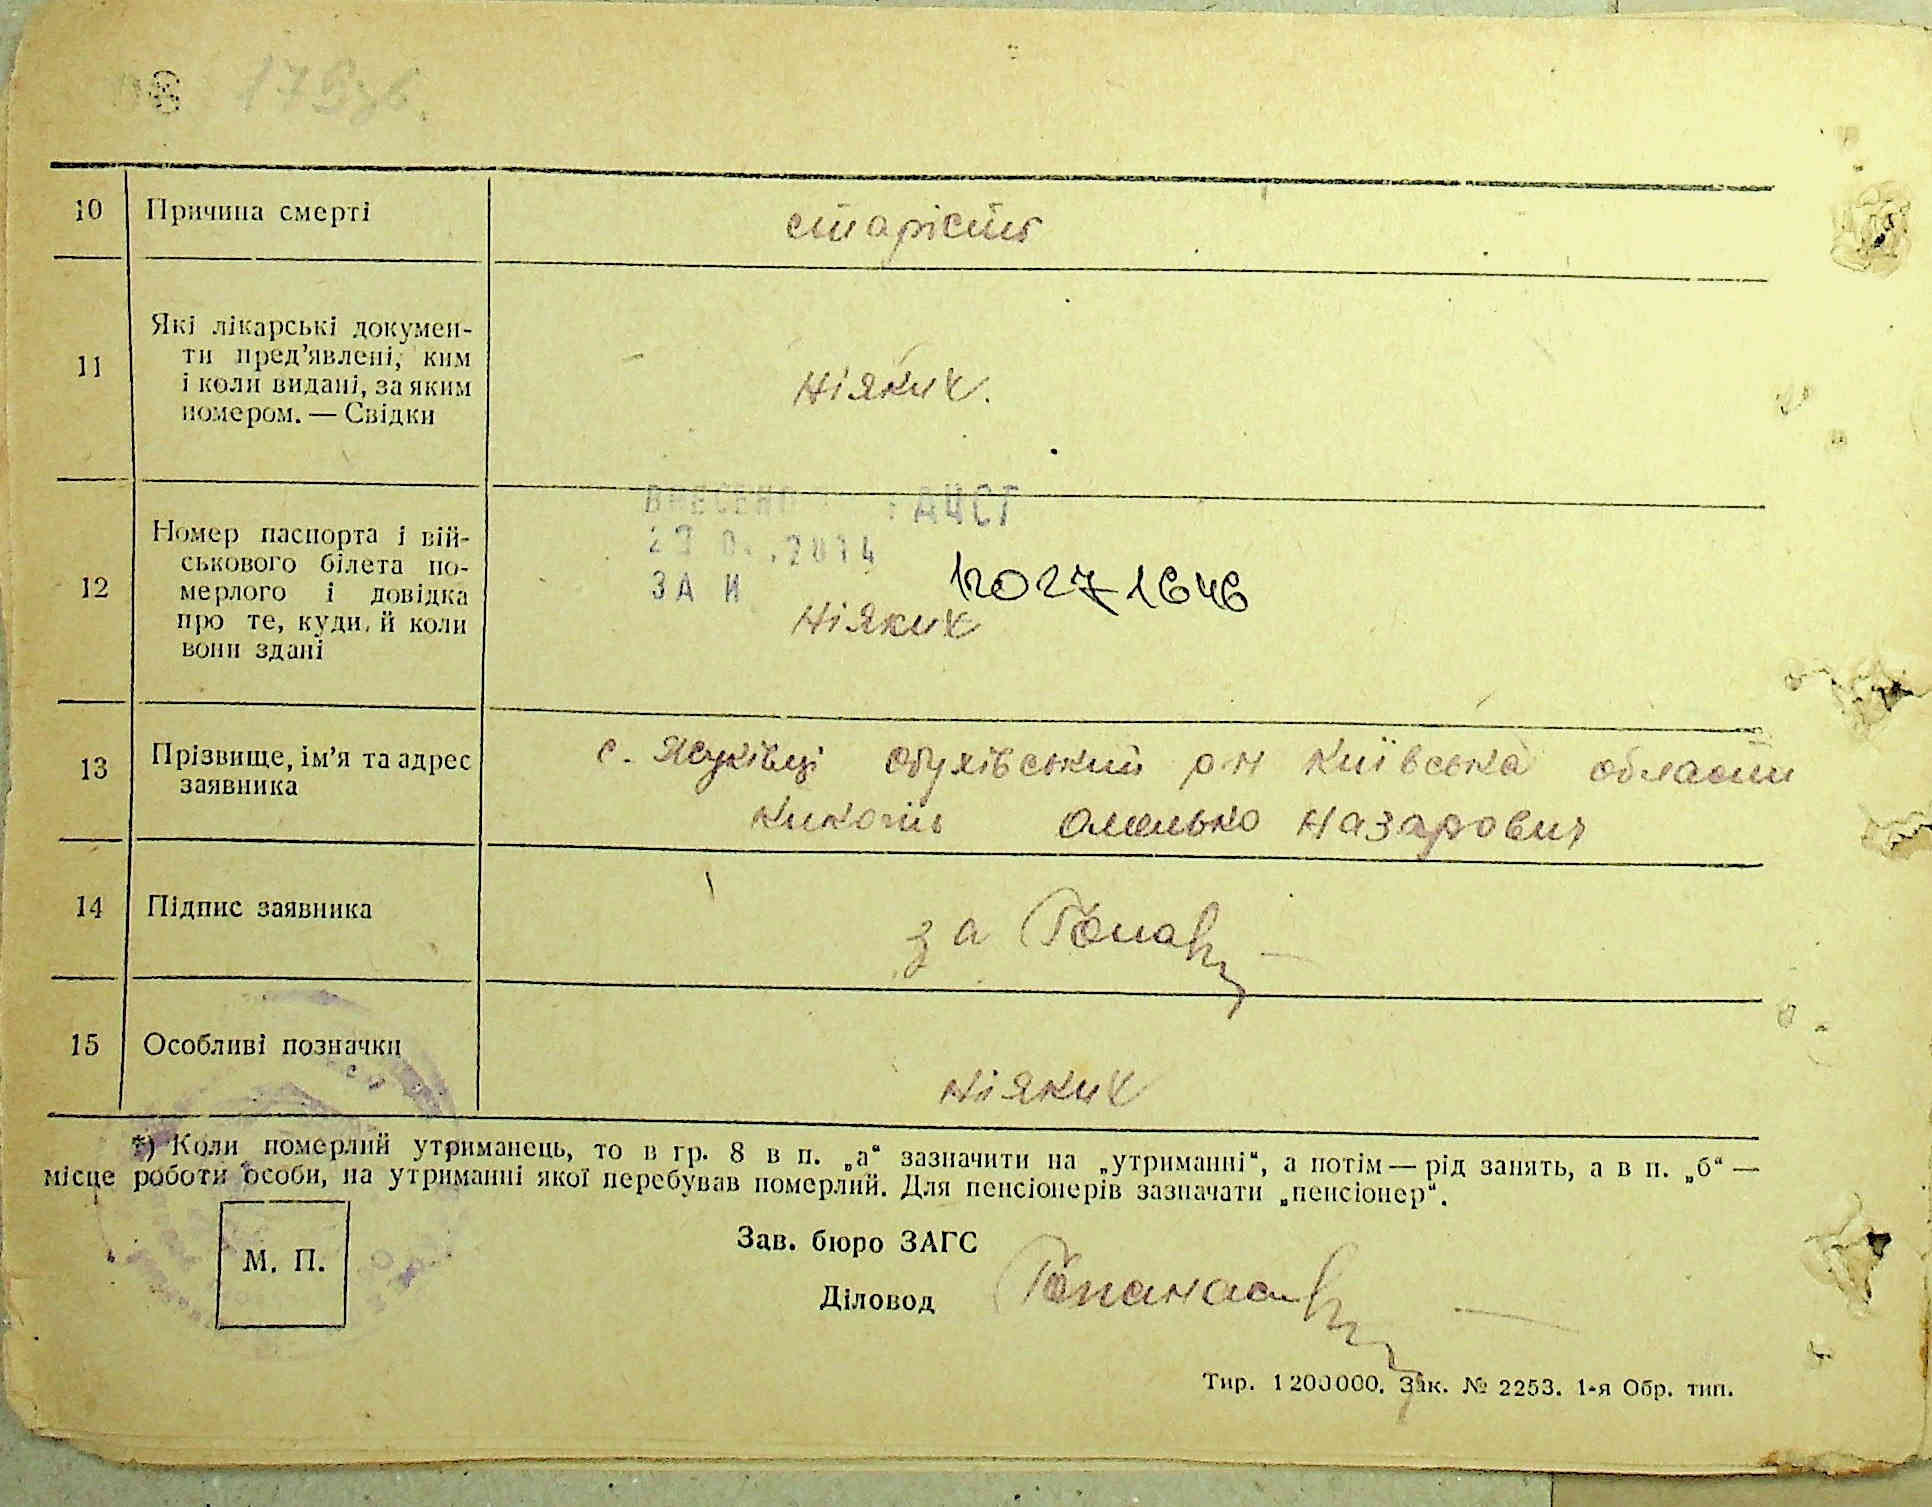 179зв.
10 Причина смерті старість
11 Які лікарські докумен-
ти пред'явлені, ким
і коли видані, за яким
номером. — Свідки
ніяких.
ВНЕСЕНО ДРАЦСГ
2014
ЗА №
12027 1646
12 Номер паспорта і вій-
ськового білета по-
мерлого і довідка
про те, куди, й коли
вони здані
ніяких
13 Прізвище, ім'я та адрес
заявника
с. Жуківці Обухівський р н Київська область
Омелько Назарович
14 Підпис заявника за
15 Особливі позначки ніяких
*) Коли померлий утриманець, то в гр. 8 в п. „а“ зазначити на „утриманні“, а потім — рід занять, а в п. „б“ —
місце роботи особи, на утриманні якої перебував померлий. Для пенсіонерів зазначати „пенсіонер“.
М. П.
Зав. бюро ЗАГС
Діловод
Тир. 1 200 000. Зак. № 2253. 1-я Обр. тип.